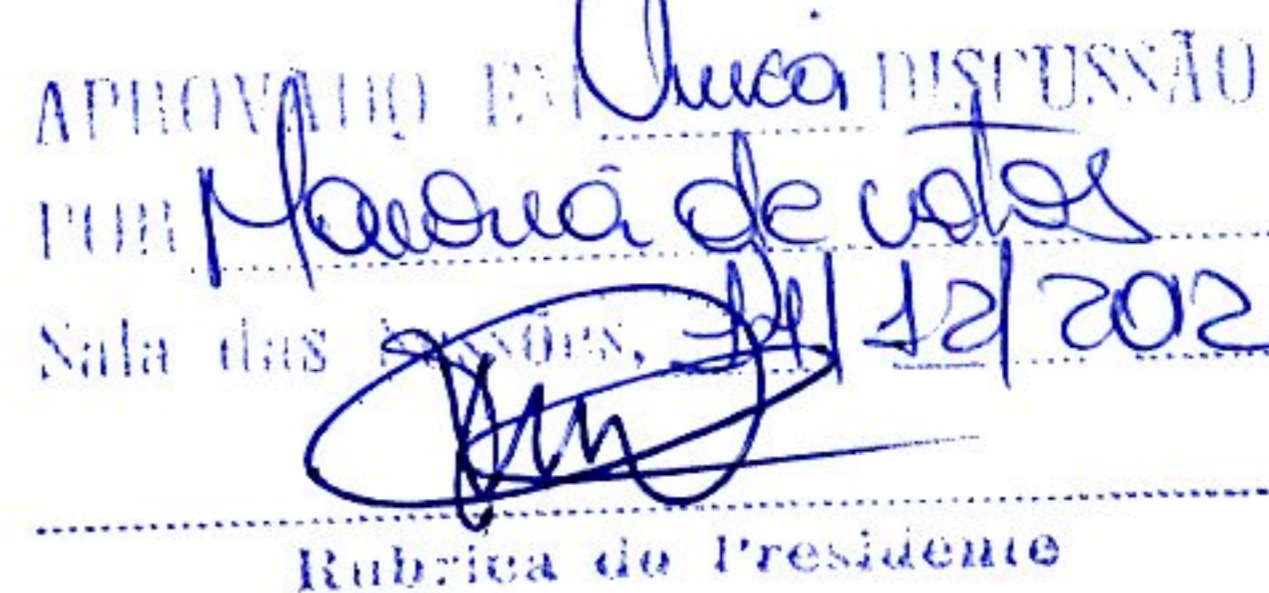 APROVADO EM Única DISCUSSÃO
POR Maioria de votos
Sala das Sessões, /12/202
Rubrica do Presidente